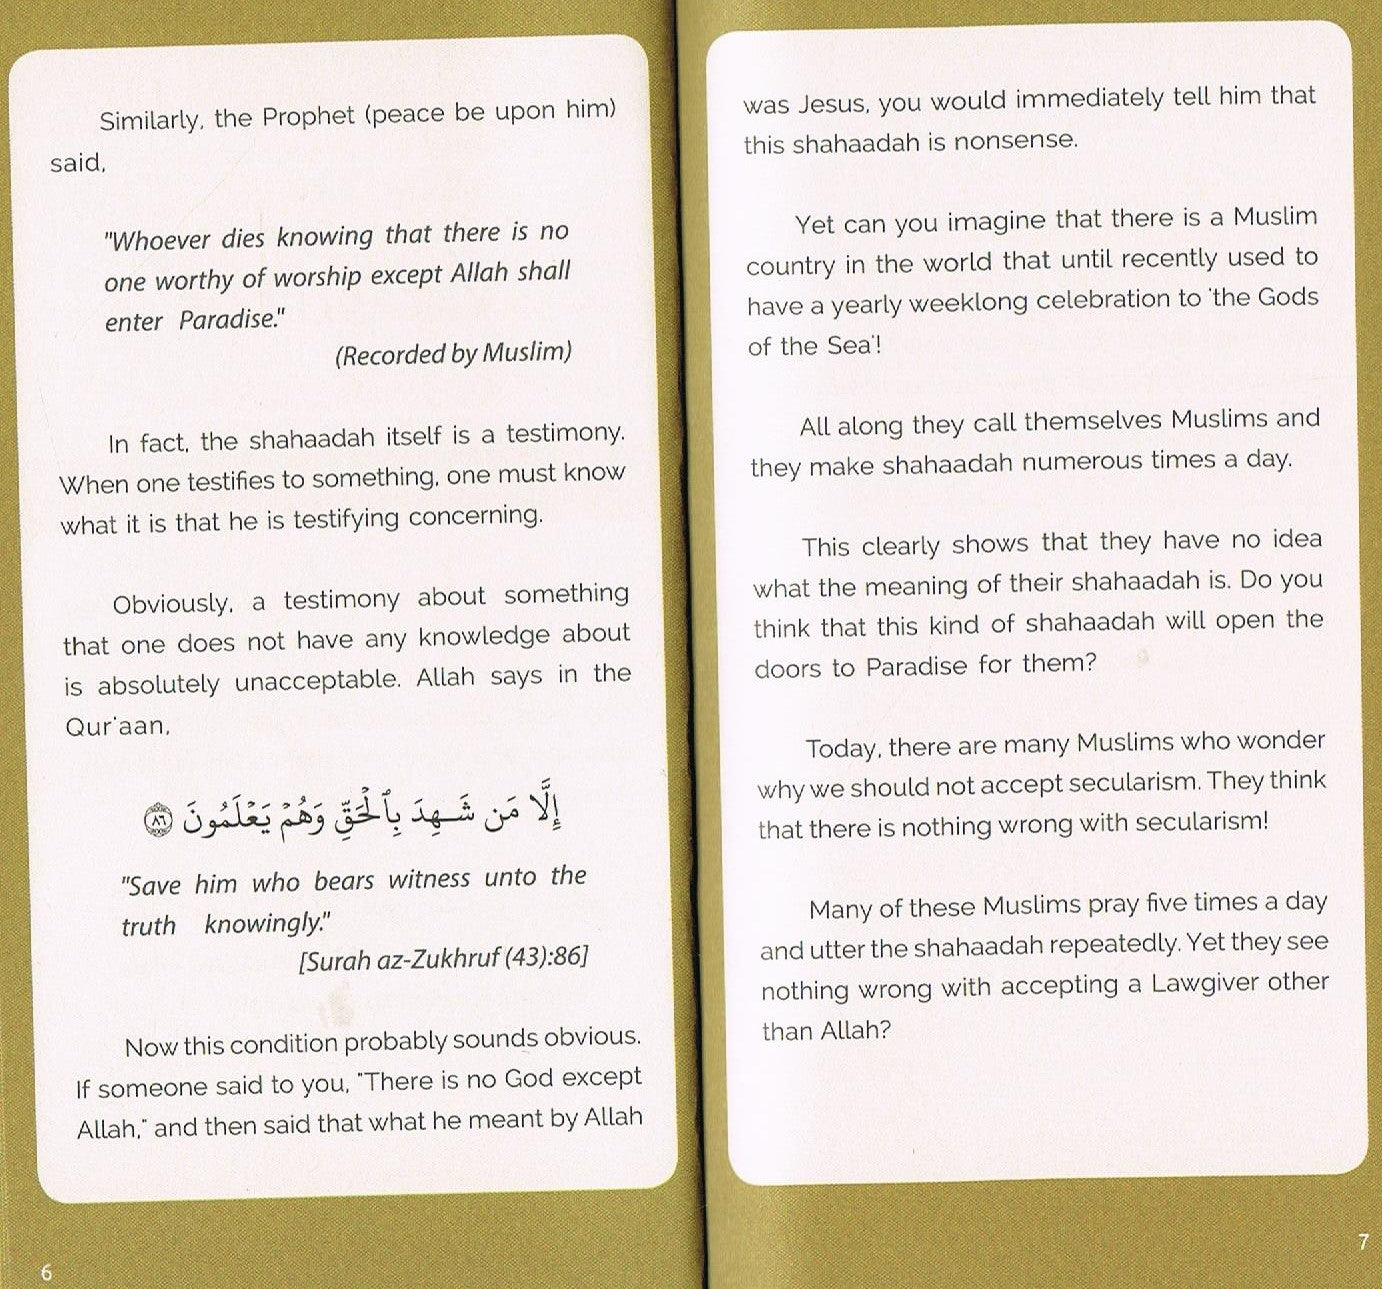 Similarly, the Prophet (peace be upon him)
said,
"Whoever dies knowing that there is no
one worthy of worship except Allah shall
enter Paradise."
(Recorded by Muslim)
In fact, the shahaadah itself is a testimony.
When one testifies to something, one must know
what it is that he is testifying concerning.
Obviously, a testimony about something
that one does not have any knowledge about
is absolutely unacceptable. Allah says in the
Qur'aan,
إِلَّا مَن شَهِدَ بِٱلْحَقِّ وَهُمْ يَعْلَمُونَ ٨٦
"Save him who bears witness unto the
truth knowingly."
[Surah az-Zukhruf (43):86]
Now this condition probably sounds obvious.
If someone said to you, "There is no God except
Allah," and then said that what he meant by Allah
6
was Jesus, you would immediately tell him that
this shahaadah is nonsense.
Yet can you imagine that there is a Muslim
country in the world that until recently used to
have a yearly weeklong celebration to 'the Gods
of the Sea'!
All along they call themselves Muslims and
they make shahaadah numerous times a day.
This clearly shows that they have no idea
what the meaning of their shahaadah is. Do you
think that this kind of shahaadah will open the
doors to Paradise for them?
Today, there are many Muslims who wonder
why we should not accept secularism. They think
that there is nothing wrong with secularism!
Many of these Muslims pray five times a day
and utter the shahaadah repeatedly. Yet they see
nothing wrong with accepting a Lawgiver other
than Allah?
7